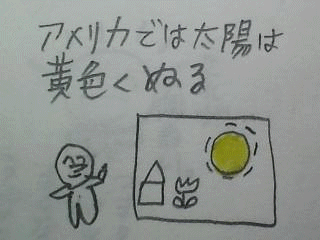 アメリカでは太陽は
黄色くぬる